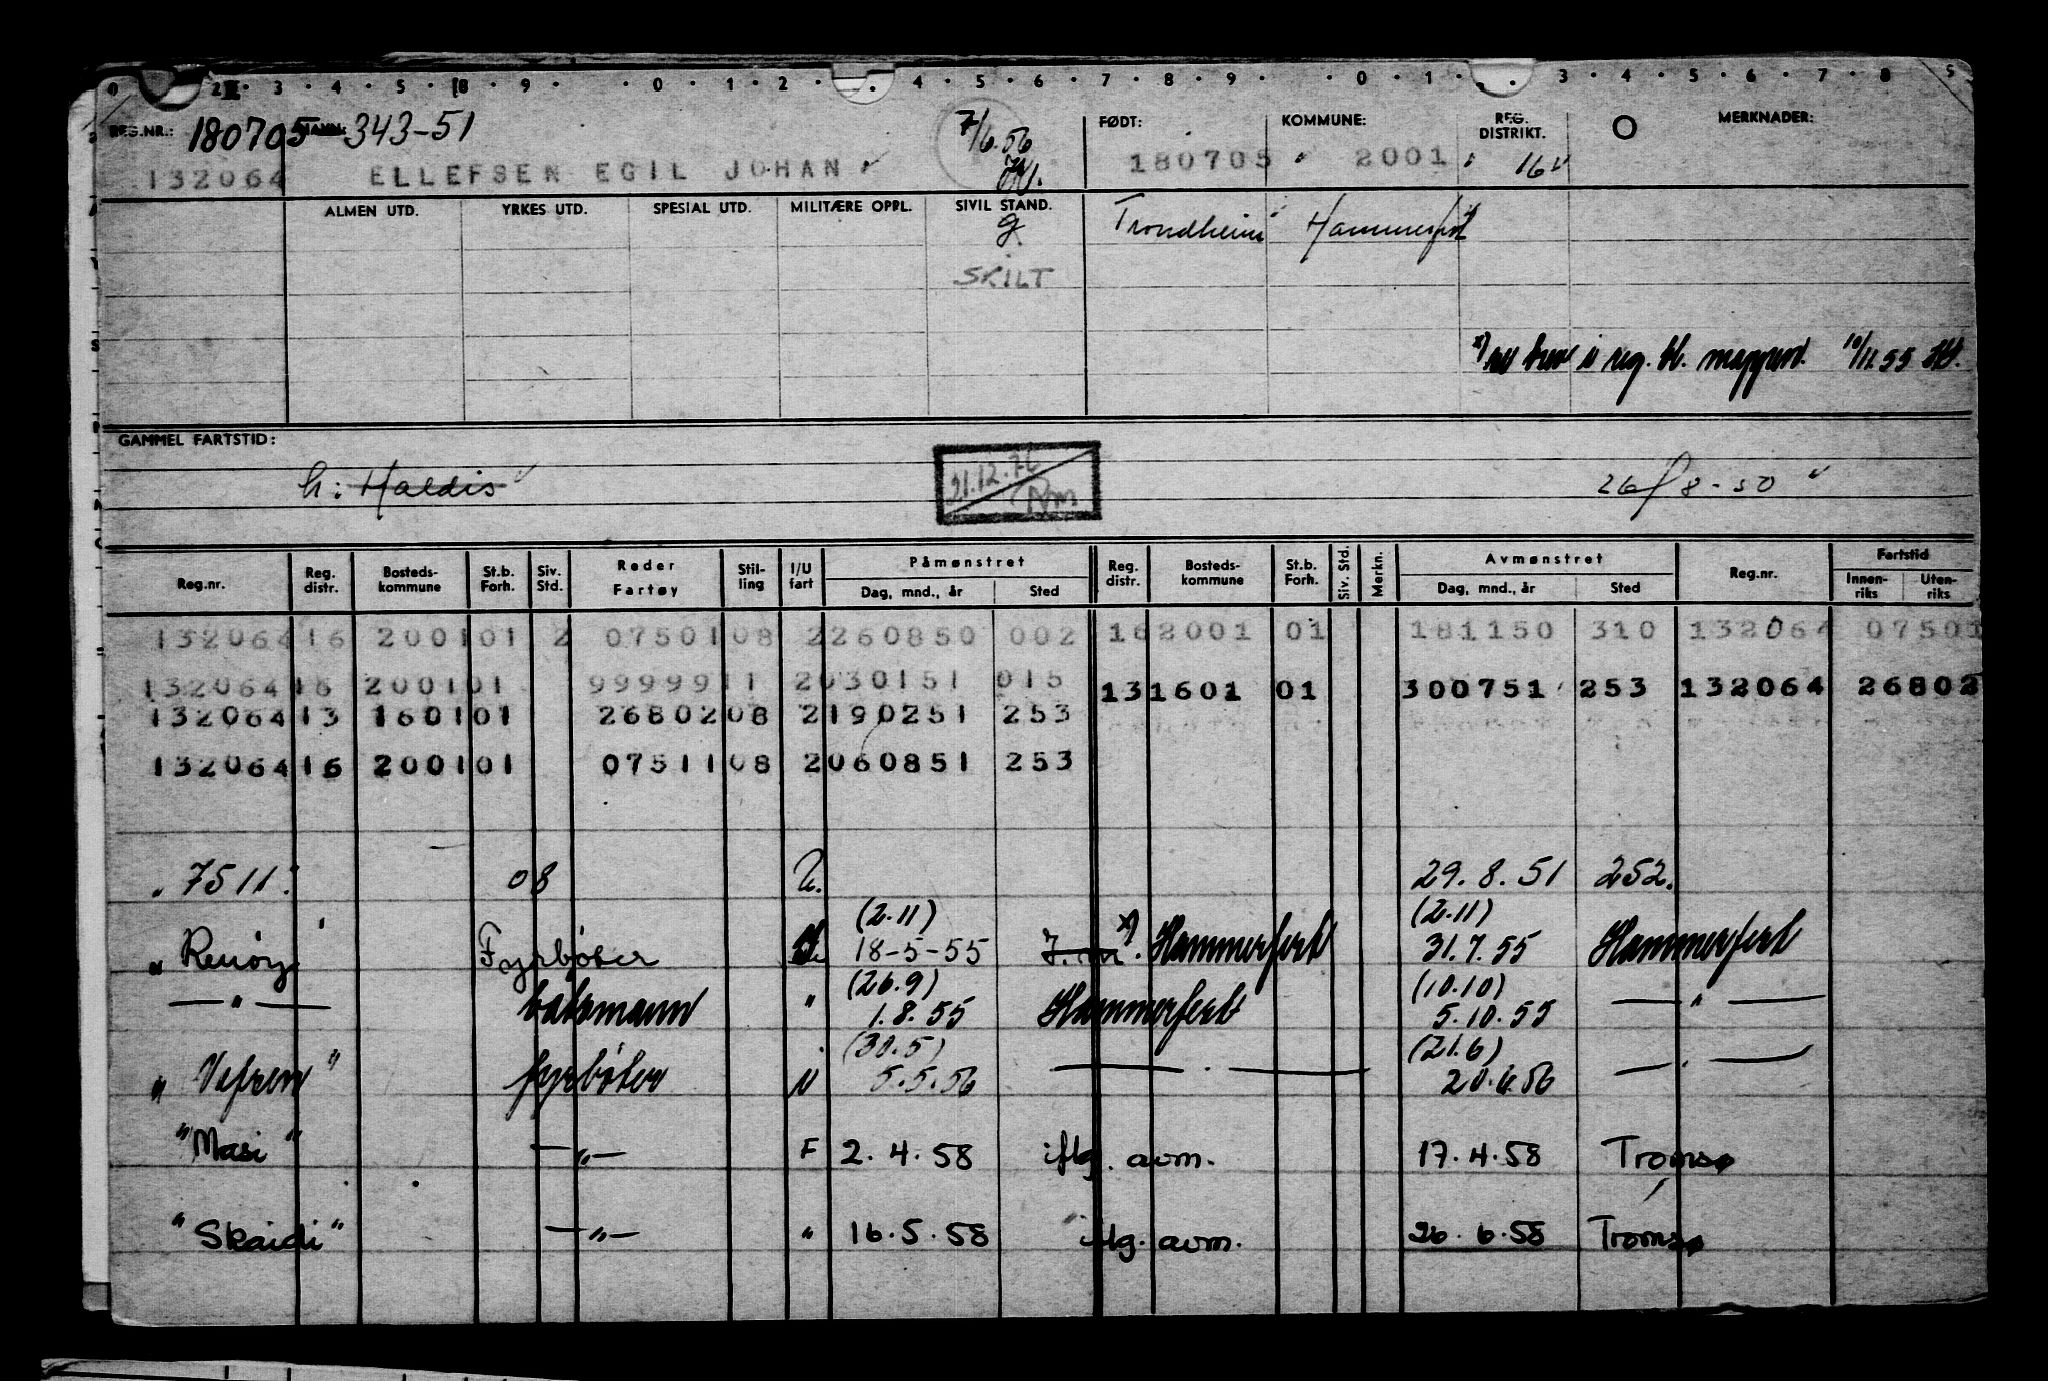 REG.NR.: 180705 NAVN: 343-51 7/6.56 FØDT: KOMMUNE: REG. DISTRIKT. O MERKNADER:
132064 ELLEFSEN EGIL JOHAN 180705 2001 16
ALMEN UTD. YRKES UTD. SPESIAL UTD. MILITÆRE OPPL. SIVIL STAND.
g Trondheim Hammerfest
SKILT
x) reg. bl. mappen. 10/11.55
GAMMEL FARTSTID:
h: Haldis 21.12.76 26/8-50
Reg.nr. Reg. distr. Bosteds-kommune St.b. Forh. Siv. Std. Reder Fartøy Stil-ling I/U fart Påmønstret Dag, mnd., år Sted Reg. distr. Bosteds-kommune St.b. Forh. Siv. Std. Merkn. Avmønstret Dag, mnd., år Sted Reg.nr. Fartstid Innen-riks Uten-riks
132064 16 2001 01 2 07501 08 2 260850 002 16 2001 01 181150 310 132064 07501
132064 16 2001 01 99999 11 2 030151 015
13 1601 01 300751 253 132064 26802
132064 13 1601 01 26802 08 2 190251 253
132064 16 2001 01 07511 08 2 060851 253
" 7511. 08 U. 29.8.51 252.
(2.11) (2.11)
" Renøy Fyrbøter 18-5-55 x) Hammerfest 31.7.55 Hammerfest
(26.9) (10.10)
—"— båtsmann " 1.8.55 Hammerfest 5.10.55 —"—
(30.5) (21.6)
" Vefsen" fyrbøter " 5.5.56 —"— 20.6.56 —"—
"Masi" —"— F 2.4.58 iflg. avm. 17.4.58 Tromsø
"Skaidi" —"— " 16.5.58 iflg. avm. 26.6.58 Tromsø